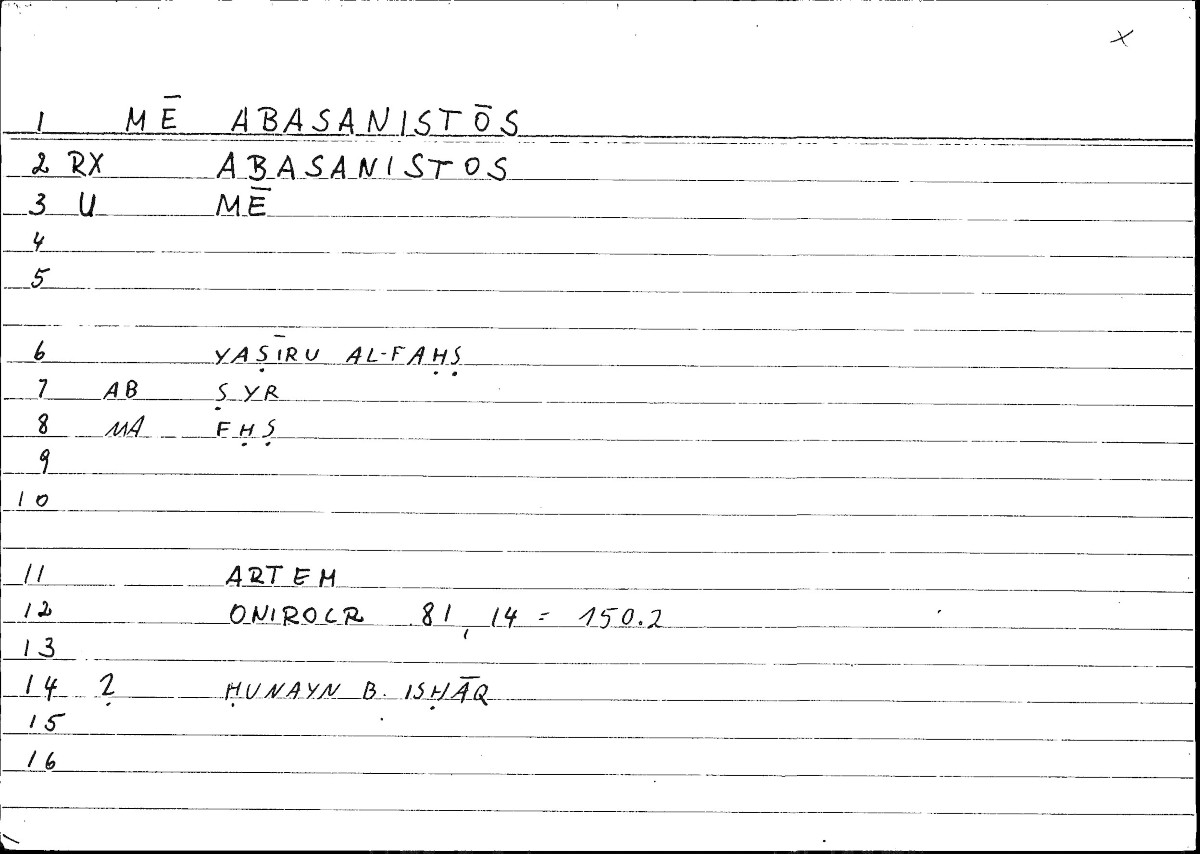 X
1 MĒ ABASANISTŌS
2 RX ABASANISTOS
3 U MĒ
4
5
6 YAṢĪRU AL-FAḤṢ
7 AB ṢYR
8 MA FḤṢ
9
10
11 ARTEM
12 ONIROCR 81,14 = 150.2
13
14 ? ḤUNAYN B. ISḤĀQ
15
16